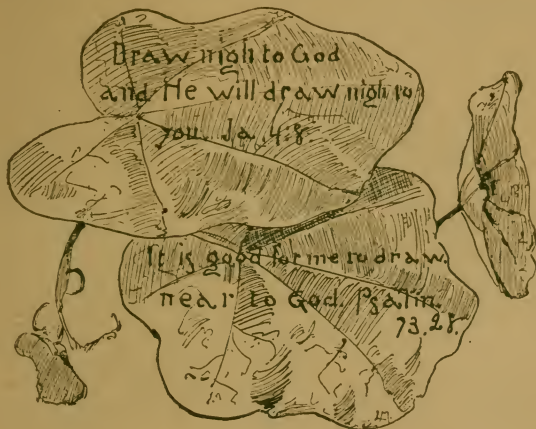 Draw nigh to God
and He will draw nigh to
you. Ja. 4:8
It is good for me to draw
near to God. Psalm.
73.28.